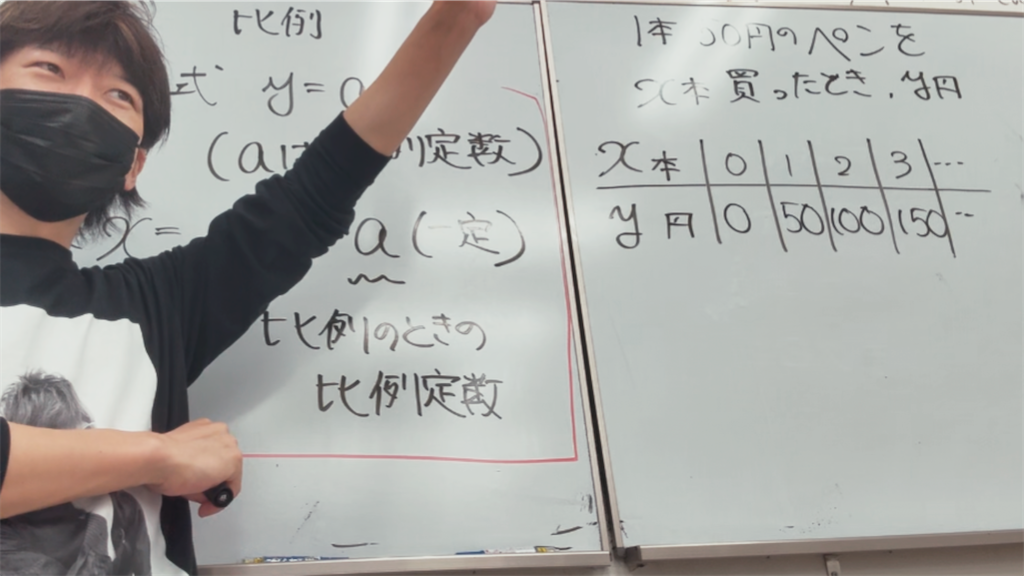 比例
式 y=a
(aは 例定数)
x= a(一定)
比例のときの
比例定数
1本 50円のペンを
x本 買ったとき、y円
x本 0 1 2 3 …
y円 0 50 100 150 …